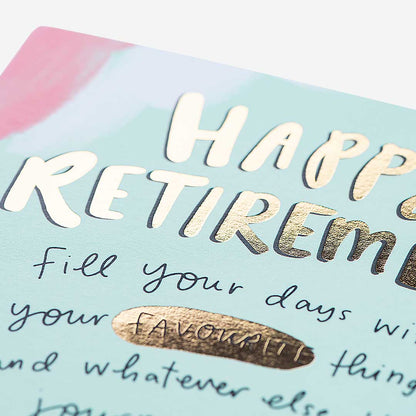 HAPP
RETIREM
fill your days wi
your FAVOURITE thing
and whatever else